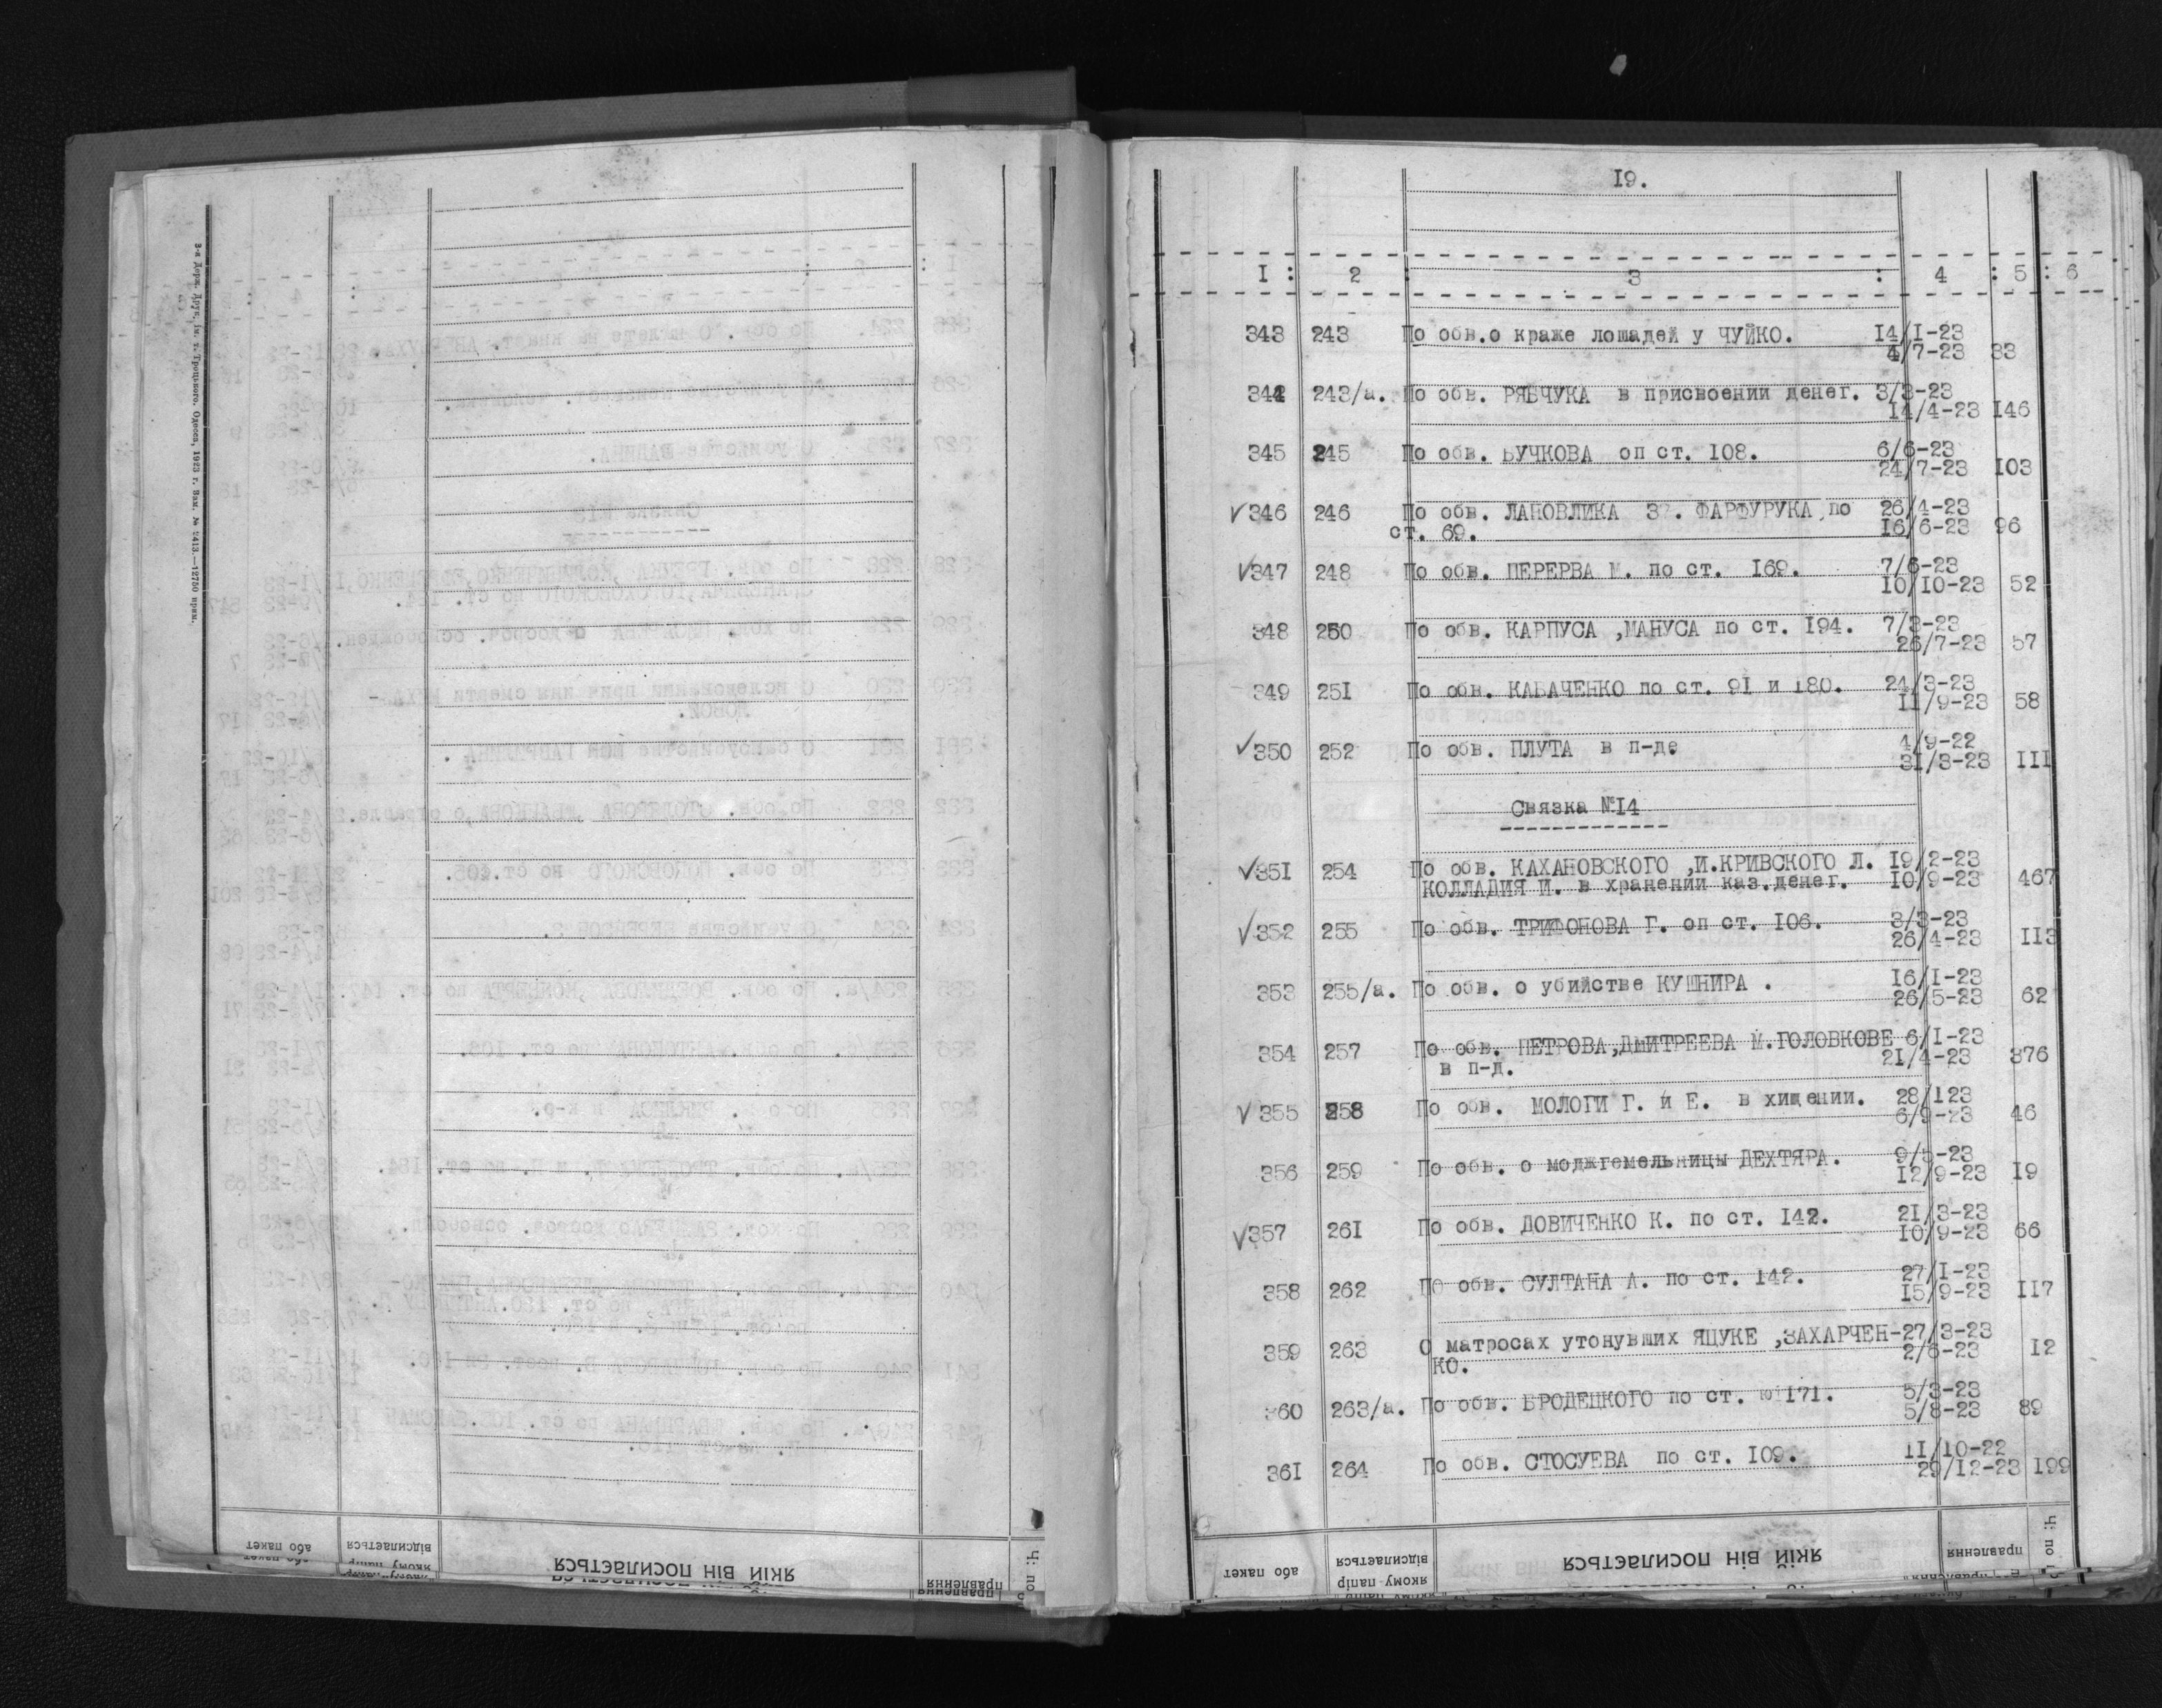 3-я Держ. Друк. ім. т. Троцького. Одеса, 1923 г. Зак. № 2413.—12750 прим.
або пакет
відсилається
якому папір
якій він посилається
правлення
19.
I : 2 : 3 : 4 : 5 : 6
343 243 По обв.о краже лошадей у ЧУЙКО. 14/I-23
4/7-23 33
344 243/а. По обв. РЯБЧУКА в присвоении денег. 3/3-23
14/4-23 146
345 245 По обв. БУЧКОВА оп ст. 108. 6/6-23
24/7-23 103
✓346 246 По обв. ЛАНОВЛИКА ФАРФУРУКА по 26/4-23
ст. 69. 16/6-23 96
✓347 248 По обв. ПЕРЕРВА М. по ст. 169. 7/6-23
10/10-23 52
348 250 По обв. КАРПУСА ,МАНУСА по ст. 194. 7/3-23
26/7-23 57
349 251 По обв. КАБАЧЕНКО по ст. 91 и 180. 24/3-23
11/9-23 58
✓350 252 По обв. ПЛУТА в п-де 4/9-22
31/3-23 111
Связка №14
✓351 254 По обв. КАХАНОВСКОГО ,И.КРИВСКОГО Л. 19/2-23
КОЛЛАДИЯ И. в хранении каз.денег. 10/9-23 467
✓352 255 По обв. ТРИФОНОВА Г. оп ст. 106. 3/3-23
26/4-23 113
353 255/а. По обв. о убийстве КУШНИРА . 16/I-23
26/5-23 62
354 257 По обв. ПЕТРОВА,ДМИТРЕЕВА М.ГОЛОВКОВЕ 6/I-23
в п-д. 21/4-23 376
✓355 258 По обв. МОЛОГИ Г. и Е. в хищении. 28/123
6/9-23 46
356 259 По обв. о моджгемельницы ДЕХТЯРА. 9/5-23
12/9-23 19
✓357 261 По обв. ДОВИЧЕНКО К. по ст. 142. 21/3-23
10/9-23 66
358 262 ПО обв. СУЛТАНА А. по ст. 142. 27/I-23
15/9-23 117
359 263 О матросах утонувших ЯЦУКЕ ,ЗАХАРЧЕН-27/3-23
КО. 2/6-23 12
360 263/а. По обв. БРОДЕЦКОГО по ст. 171. 5/3-23
5/8-23 89
361 264 По обв. СТОСУЕВА по ст. 109. 11/10-22
29/12-23 199
або пакет
відсилається
якому папір
якій він посилається
правлення